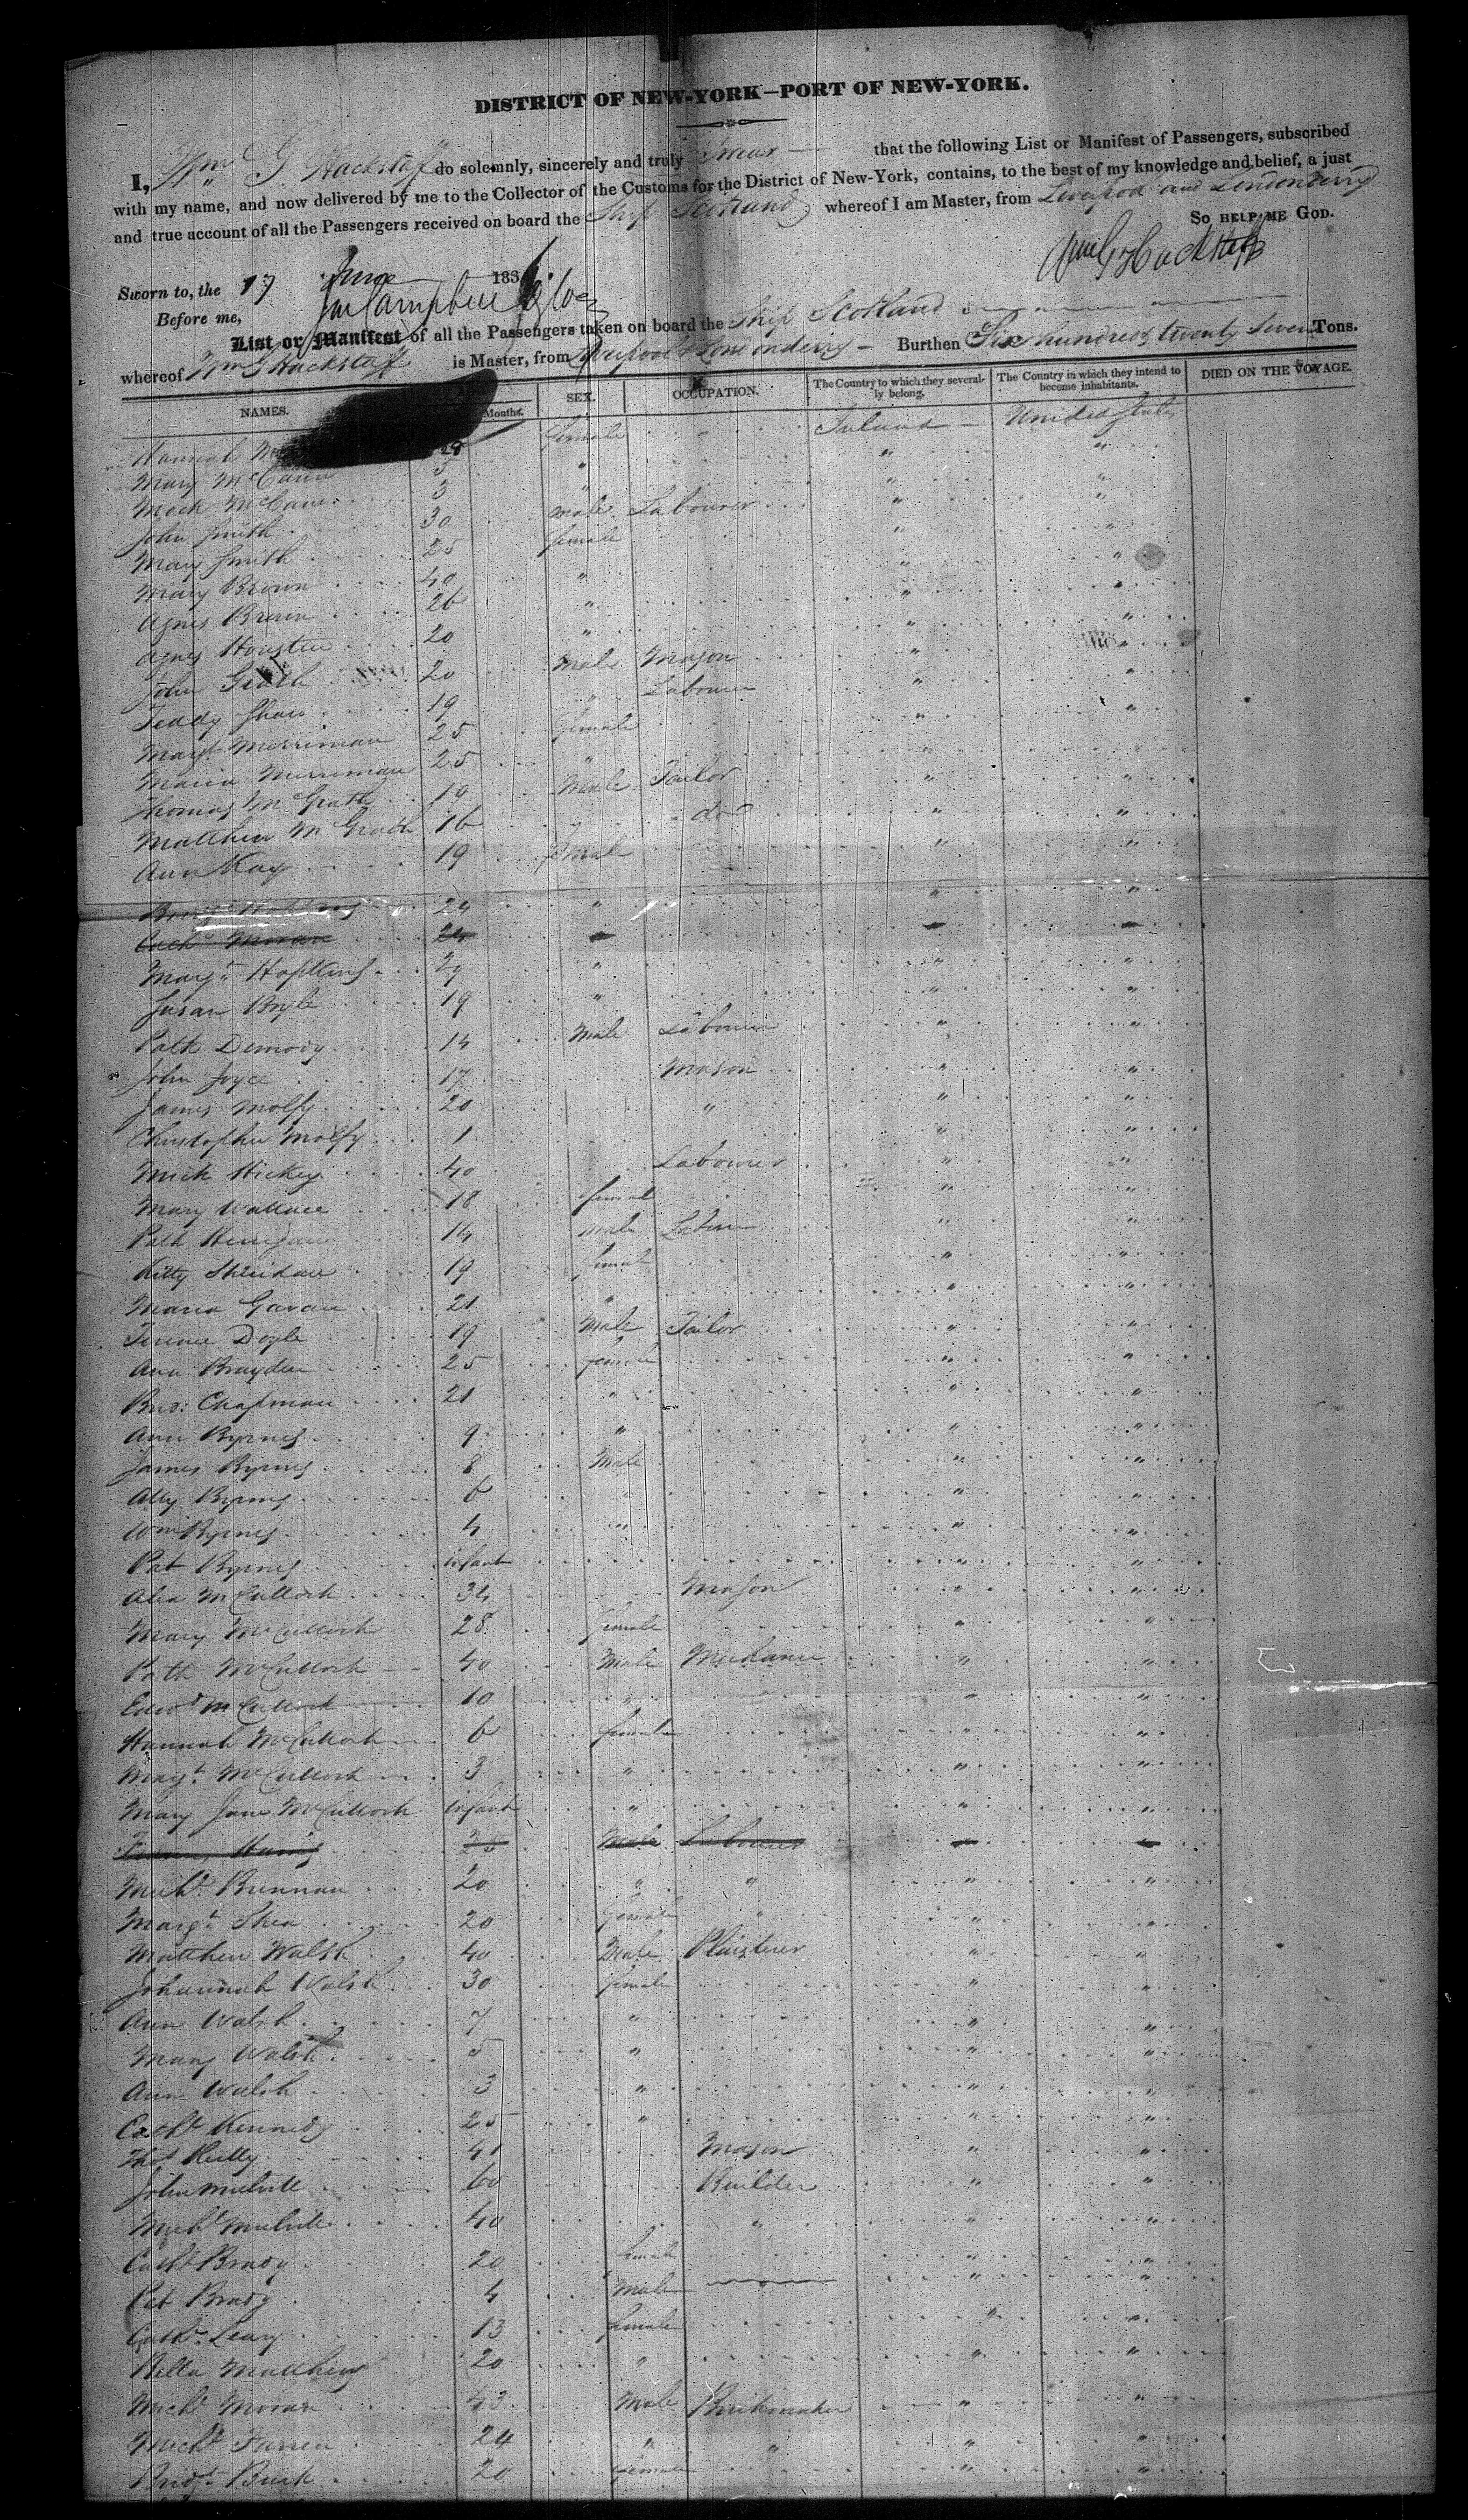 DISTRICT OF NEW-YORK—PORT OF NEW-YORK.
I, Wm G Hackstaff do solemnly, sincerely and truly swear that the following List or Manifest of Passengers, subscribed
with my name, and now delivered by me to the Collector of the Customs for the District of New-York, contains, to the best of my knowledge and belief, a just
and true account of all the Passengers received on board the Ship Scotland whereof I am Master, from Liverpool and Londonderry
So HELP ME GOD.
Wm G Hackstaff
Sworn to, the 17 June 183
Before me,
List or Manifest of all the Passengers taken on board the Ship Scotland
whereof Wm G Hackstaff is Master, from Liverpool & Londonderry — Burthen Six hundred & twenty Seven Tons.
NAMES. Months. SEX. OCCUPATION. The Country to which they severally belong. The Country in which they intend to become inhabitants. DIED ON THE VOYAGE.
Hannah 28 female Ireland United States
Mary McCann 5 " " "
3 " " "
John Smith 30 male Labourer " "
Mary Smith 25 female " "
Mary Brown 40 " " "
Agnes Brown 26 " " "
Agnes Houston 20 " " "
John 20 Male Mason " "
Teddy Shaw 19 " Labourer " "
Margt Merriman 25 female " "
Maria Merriman 25 " " "
Thomas McGrath 19 Male Tailor " "
Matthew McGrath 16 do " "
Ann Kay 19 female " "
24 " " "
Cath Moran 24 " " "
Margt Hopkins 29 " " "
Susan Boyle 19 " " "
Patk 14 Male Labourer " "
John Joyce 17 Mason " "
James Molfy 20 " " "
Christopher Molfy 1 " "
Mick Hickey 40 Labourer " "
Mary Wallace 18 female " "
Patk 14 male Labour " "
Kitty Sheridan 19 female " "
Maria Gavan 21 " " "
Terence Doyle 19 Male Tailor " "
Ann Brayden 25 female " "
Chapman 21 " " "
Ann Byrnes 9 " " "
James Byrnes 8 Male " "
Ally Byrnes 6 " " "
Wm Byrnes 4 " " "
Pat Byrnes infant " "
Alex McCulloch 34 Mason " "
Mary McCulloch 28 female " "
Patk McCulloch 40 Male Mechanic " "
Edwd McCulloch 10 " " "
Hannah McCulloch 6 female " "
Margt McCulloch 3 " " "
Mary Jane McCulloch infant " " "
25 Male Labourer " "
Michl Brennan 20 " " " "
Margt Shea 20 female " " "
Matthew Walsh 40 Male Plaisterer " "
Johannah Walsh 30 female " "
Ann Walsh 7 " " "
Mary Walsh 5 " " "
Ann Walsh 3 " " "
Cath Kennedy 25 " " "
Thos Reilly 41 Mason " "
John Melvill 60 Builder " "
Michl Melvill 40 " " "
Cath Brady 20 female " "
Pat Brady 4 Male " "
Cath Leary 13 female " "
Bella Matthews 20 " " "
Michl Moran 43 Male Brickmaker " "
Michl Farren 24 " " " "
Bridt Burk 20 female " "